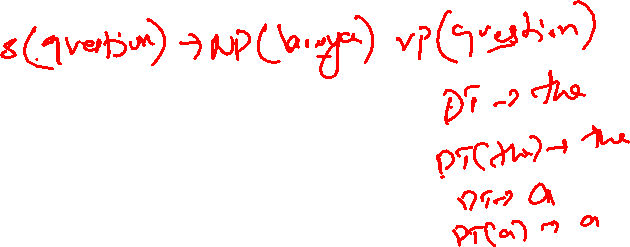 s(question) → NP(lawyer) VP(question)
DT → the
DT(the) → the
DT → a
DT(a) → a